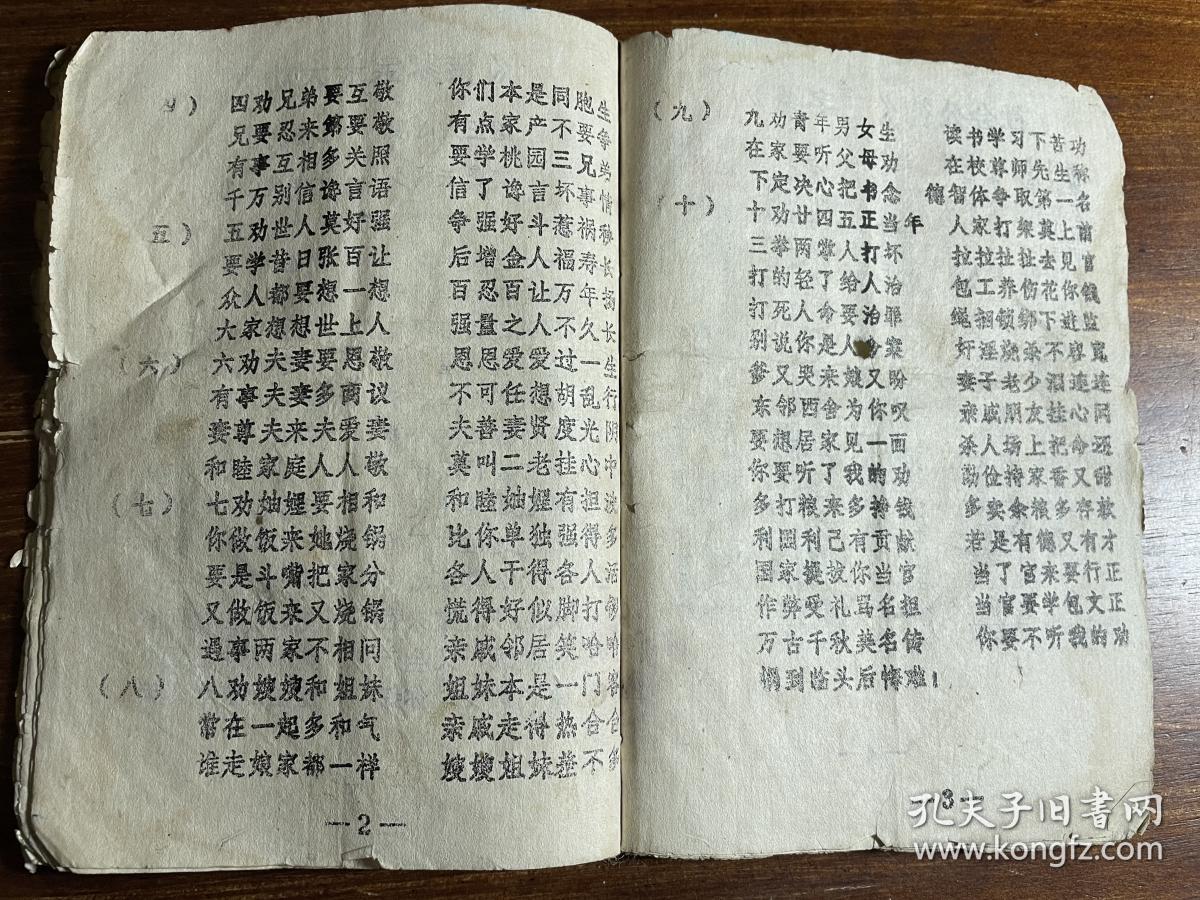 四） 四劝兄弟要互敬 你们本是同胞生
兄要忍来第要敬 有点家产不要争
有事互相多关照 要学桃园三兄弟
千万别信谗言语 信了谗言坏事情
五） 五劝世人莫好强 争强好斗惹祸秧
要学昔日张百让 后增金人福寿长
众人都要想一想 百忍百让万年扬
大家想想世上人 强量之人不久长
（六） 六劝夫妻要恩敬 恩恩爱爱过一生
有事夫妻多商议 不可任想胡乱行
妻尊夫来夫爱妻 夫善妻贤度光阴
和睦家庭人人敬 莫叫二老挂心中
（七） 七劝妯娌要相和 和睦妯娌有担波
你做饭来她烧锅 比你单独强得多
要是斗嘴把家分 各人干得各人活
又做饭来又烧锅 慌得好似脚打锣
遇事两家不相问 亲戚邻居笑哈哈
（八） 八劝嫂嫂和姐妹 姐妹本是一门客
常在一起多和气 亲戚走得热合合
谁走娘家都一样 嫂嫂姐妹差不多
—2—
（九） 九劝青年男女生 读书学习下苦功
在家要听父母劝 在校尊师先生称
下定决心把书念 德智体争取第一名
（十） 十劝廿四五正当年 人家打架莫上前
三拳两掌人打坏 拉拉扯扯去见官
打的轻了给人治 包工养伤花你钱
打死人命要治罪 绳捆锁绑下进监
别说你是人命案 奸淫烧杀不容宽
爹又哭来娘又盼 妻子老少泪连连
东邻西舍为你叹 亲戚朋友挂心间
要想居家见一面 杀人场上把命还
你要听了我的劝 勤俭持家香又甜
多打粮来多挣钱 多卖余粮多存款
利国利己有贡献 若是有德又有才
国家提拔你当官 当了官来要行正
作弊爱礼骂名担 当官要学包文正
万古千秋美名传 你要不听我的劝
祸到临头后悔难！
—3—
孔夫子旧书网
www.kongfz.com